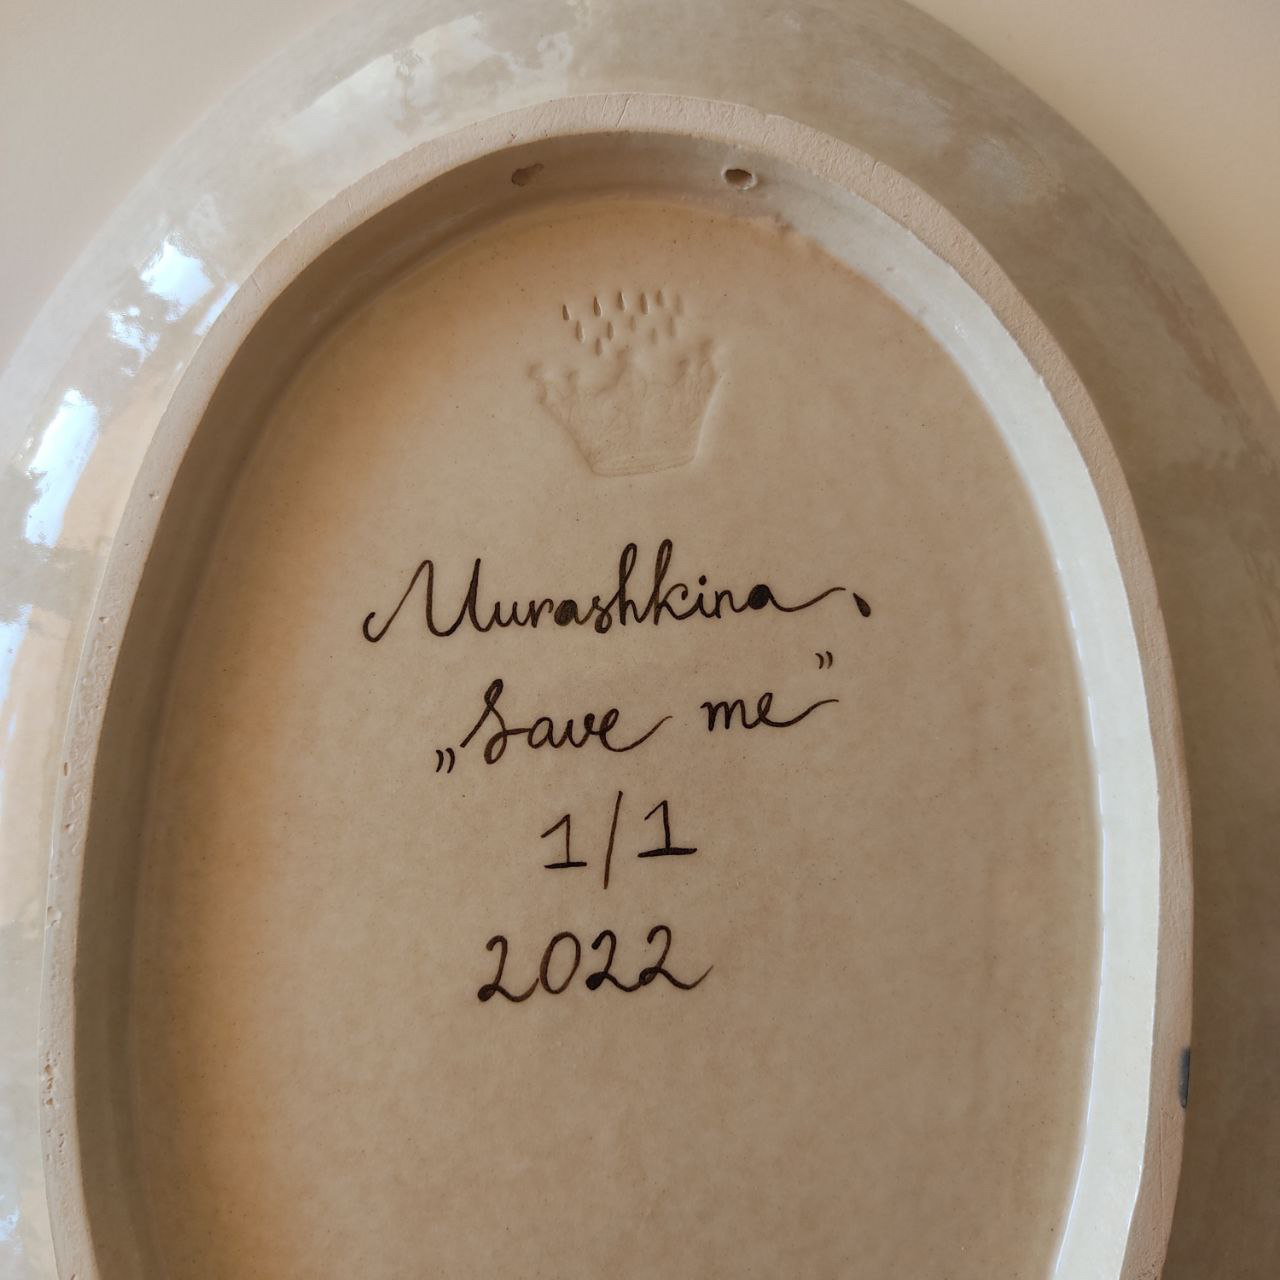 Murashkina,
„Save me”
1/1
2022